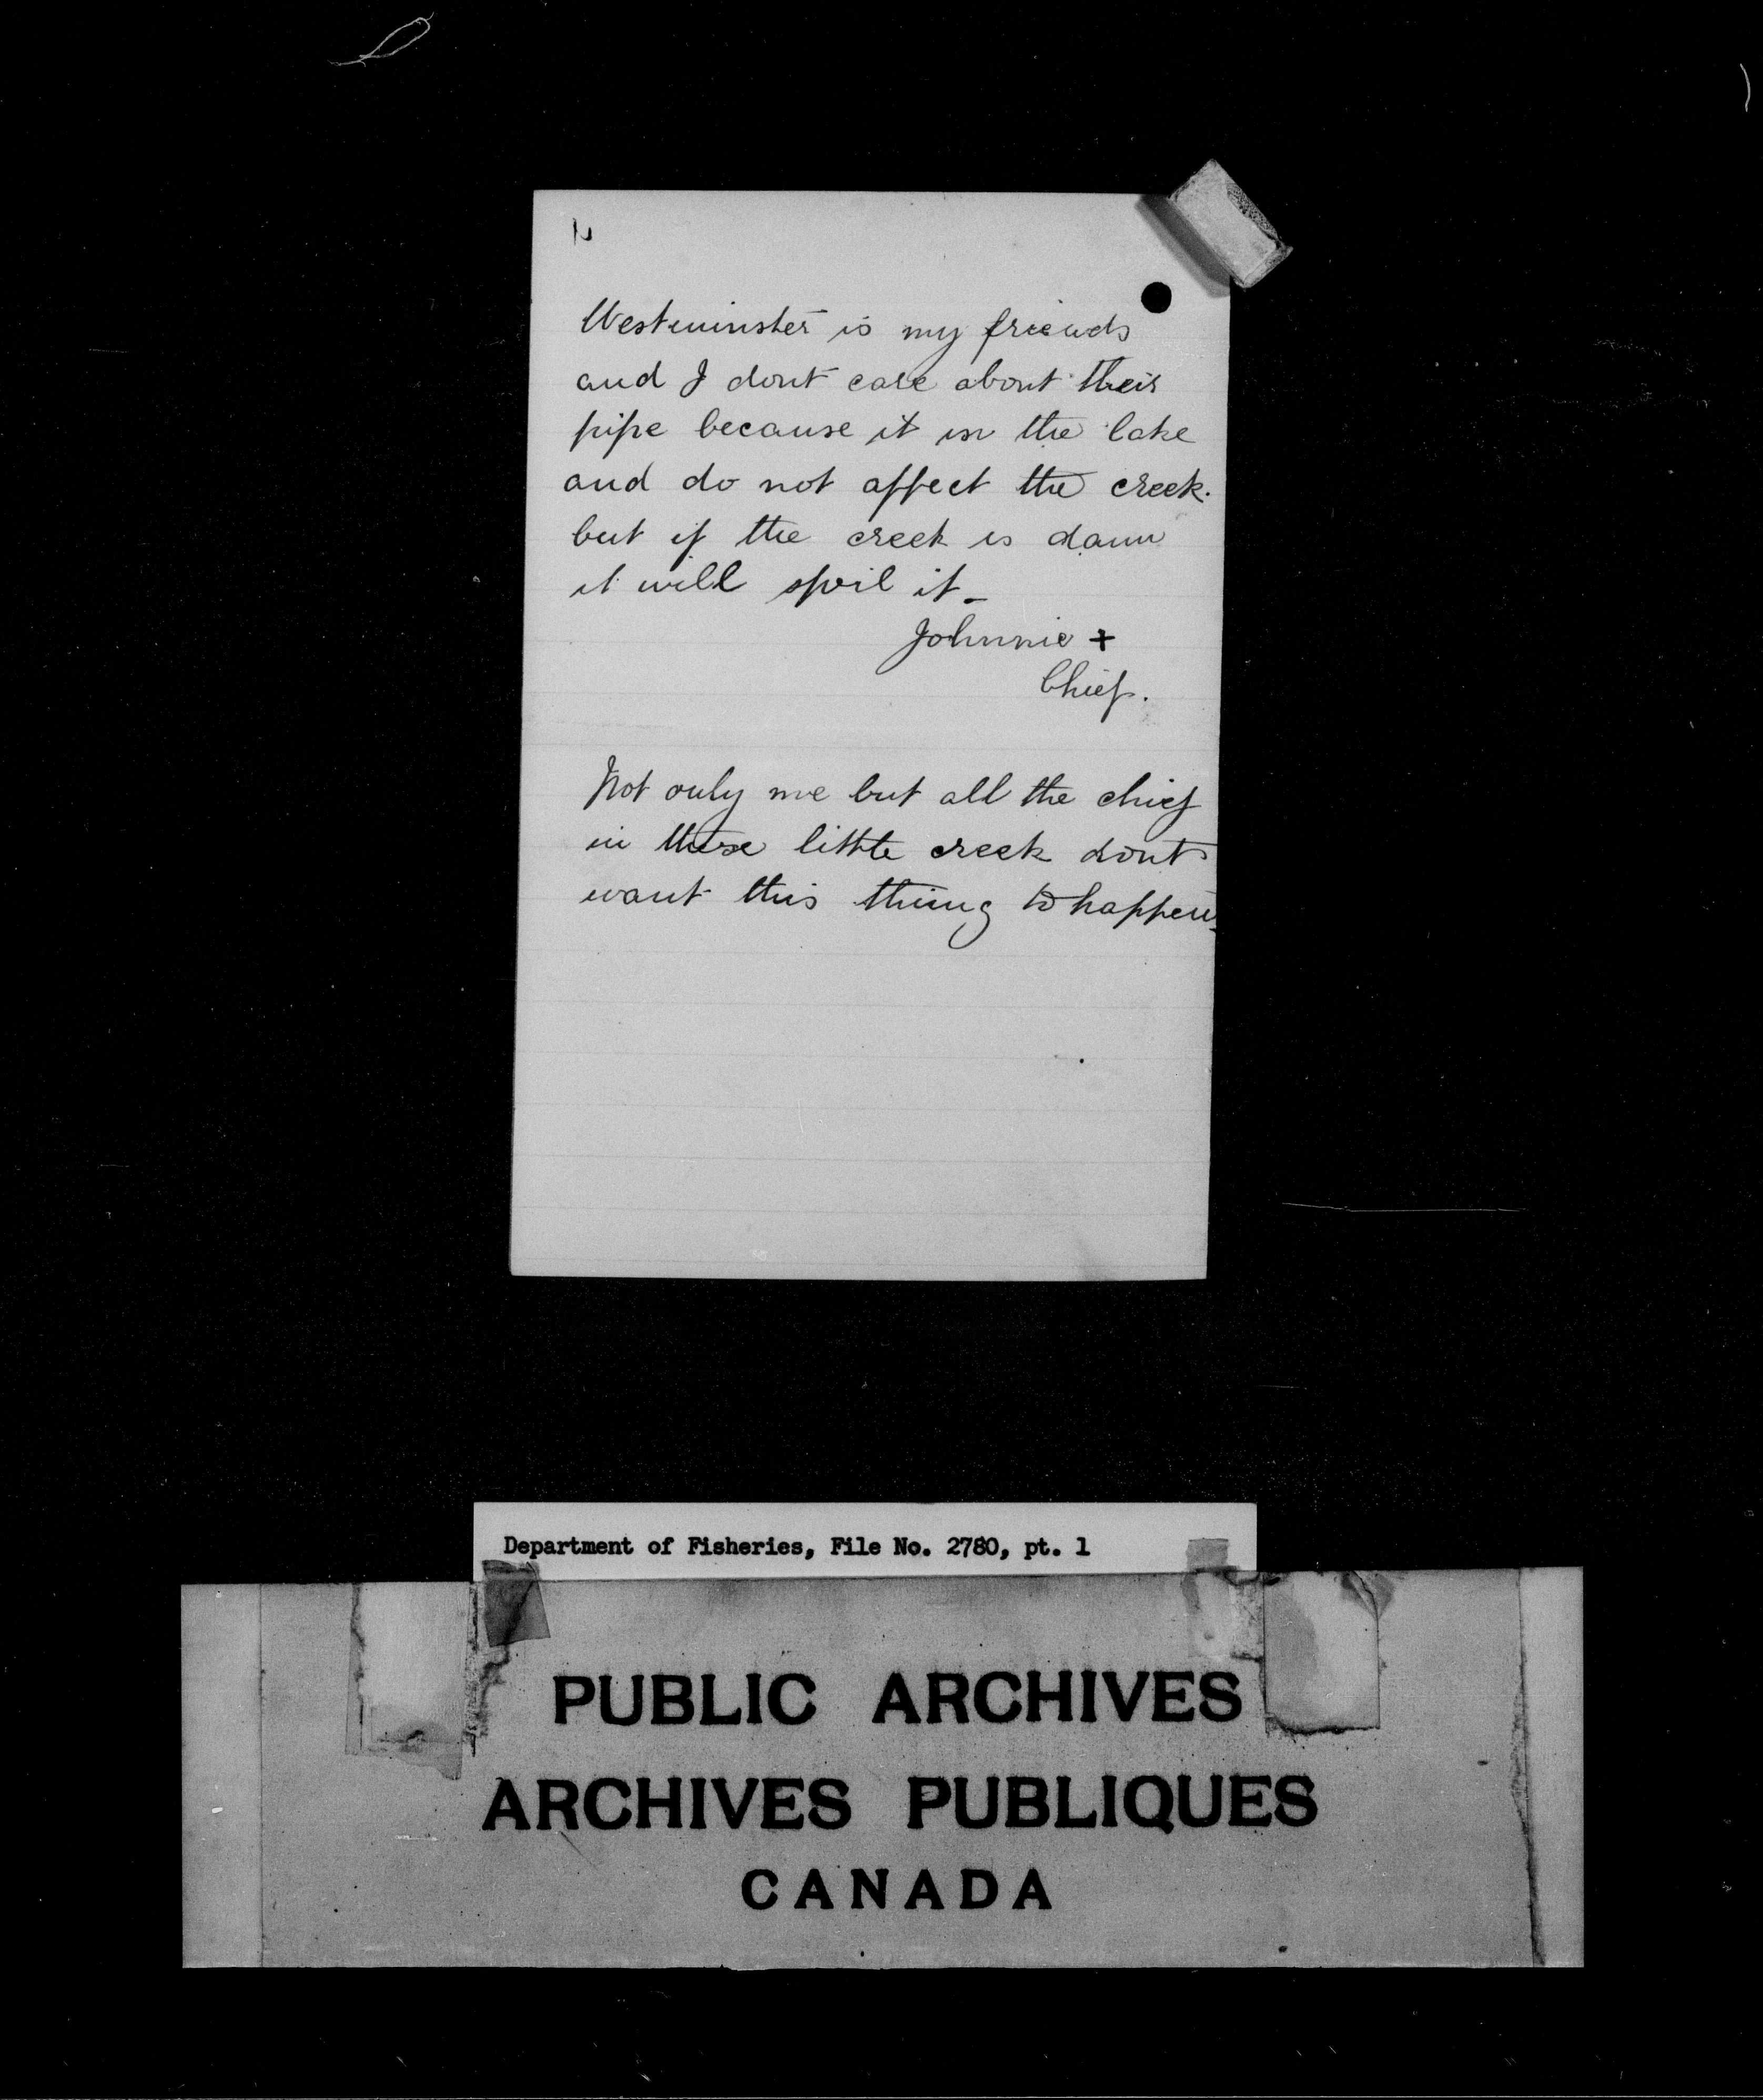 Westminster is my friends
and I dont care about their
pipe because it in the lake
and do not affect the creek.
but if the creek is dam
it will spoil it_
Johnnie +
Chief.
Not only me but all the chief
in these little creek dont
want this thing to happen
Department of Fisheries, File No. 2780, pt. 1
PUBLIC ARCHIVES
ARCHIVES PUBLIQUES
CANADA